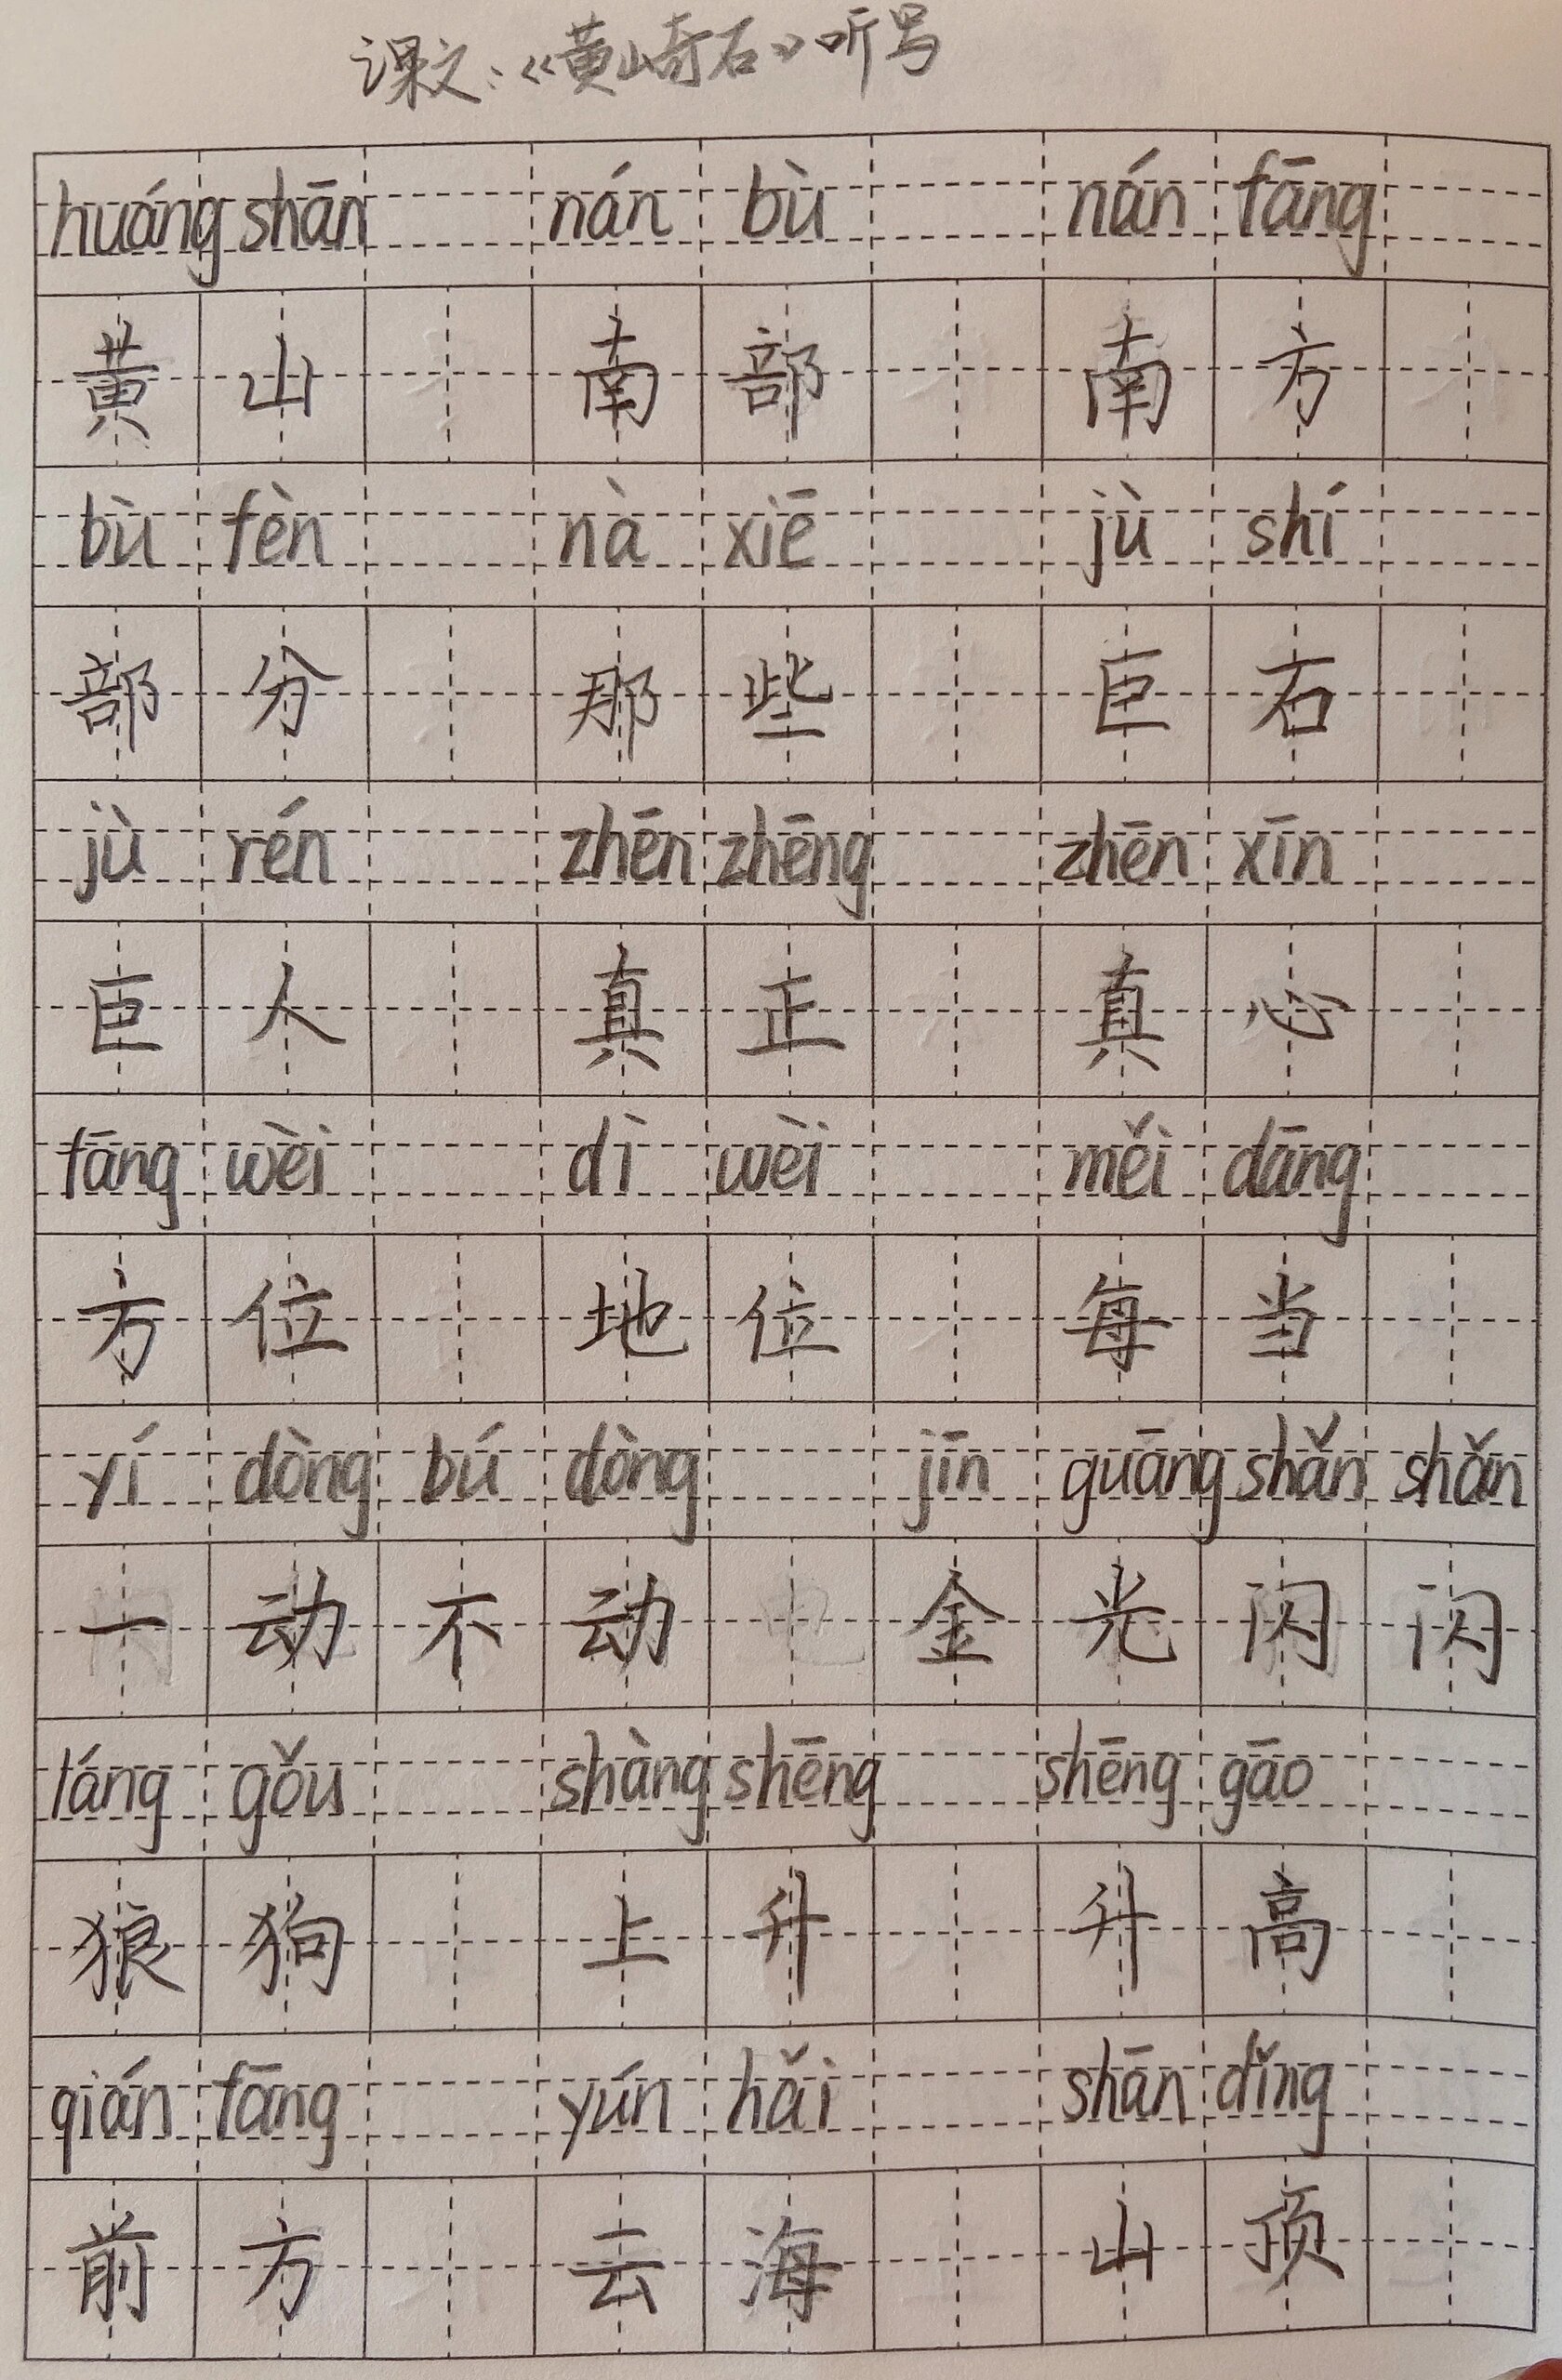 课文：《黄山奇石》听写
huáng shān nán bù nán fāng
黄山 南部 南方
bù fèn nà xiē jù shí
部分 那些 巨石
jù rén zhēn zhēng zhēn xīn
巨人 真正 真心
fāng wèi dì wèi měi dāng
方位 地位 每当
yí dòng bú dòng jīn guāng shǎn shǎn
一动不动 金光闪闪
láng gǒu shàng shēng shēng gāo
狼狗 上升 升高
qián fāng yún hǎi shān dǐng
前方 云海 山顶